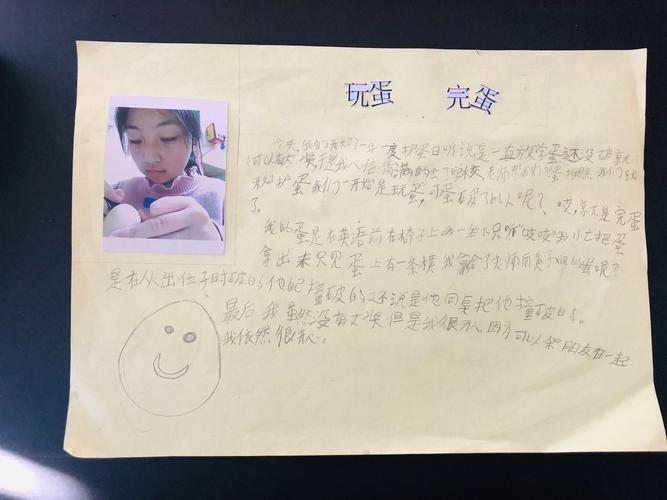 玩蛋 完蛋
今天,我们开始了一年一度护蛋日听说是一直到放学蛋还没破就
可以有大奖于是我心信满满的去了学校老师帮我们与蛋拍照我们就
开始护蛋我们一开始是玩蛋,可蛋破了的人呢?哎,就是完蛋
了。
我的蛋是在英语前在椅子上一坐下只听"咬咬"我小心把蛋
拿出来只见蛋上有一条横我拿给了老师而黄子 的蛋呢?
是在从出位子时破的他自己撞破的还说是他同桌把他撞破的。
最后我虽然没有大奖但是我很开心因为可以和朋友在一起
我依然很开心。